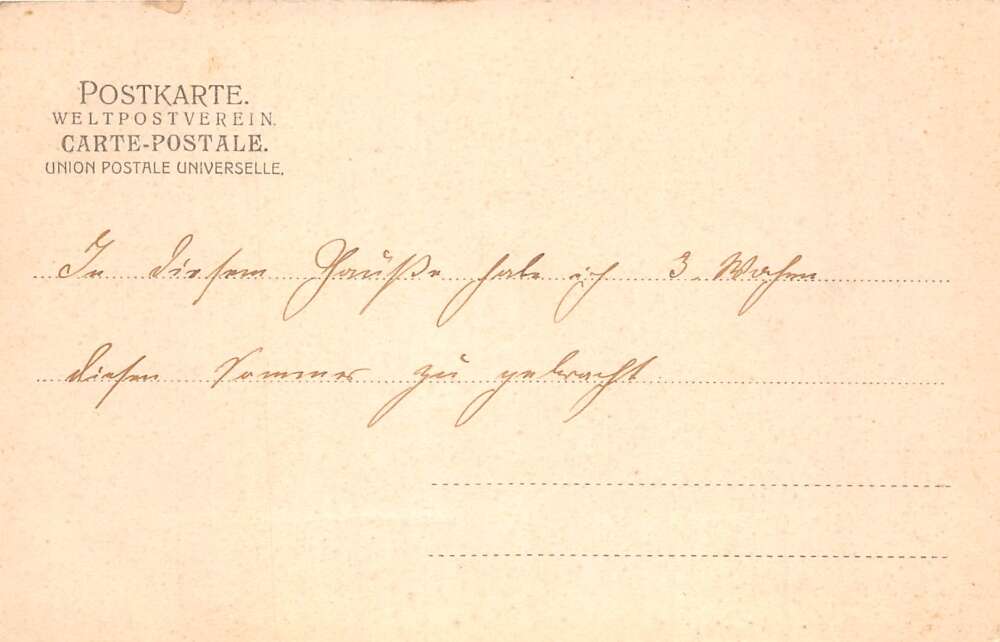 POSTKARTE.
WELTPOSTVEREIN.
CARTE-POSTALE.
UNION POSTALE UNIVERSELLE.
In diesem Hauße habe ich 3 Wochen
diesen Sommer zu gebracht